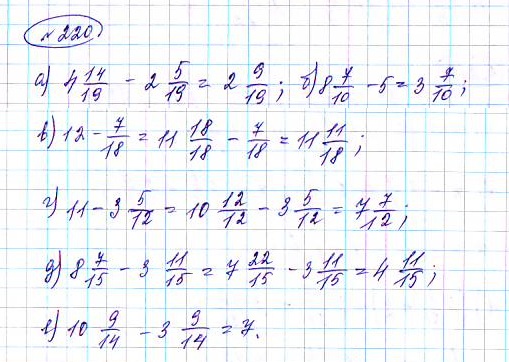 №220
а) 4 14/19 − 2 5/19 = 2 9/19; б) 8 7/10 − 5 = 3 7/10;
в) 12 − 7/18 = 11 18/18 − 7/18 = 11 11/18;
г) 11 − 3 5/12 = 10 12/12 − 3 5/12 = 7 7/12;
д) 8 7/15 − 3 11/15 = 7 22/15 − 3 11/15 = 4 11/15;
е) 10 9/14 − 3 9/14 = 7.